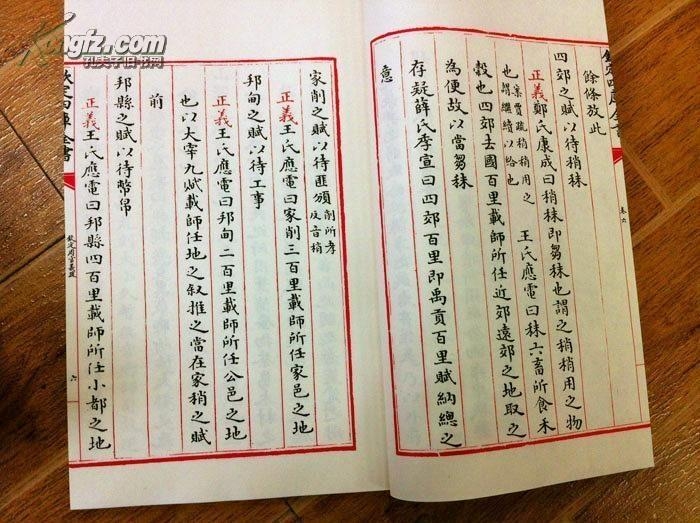 餘條放此
四郊之賦以待稍秣
正義鄭氏康成曰稍秣即芻秣也謂之稍稍用之物
也 案賈疏稍稍用之謂繼續以給也 王氏應電曰秣六畜所食禾
穀也四郊去國百里載師所任近郊遠郊之地取之
為便故以當芻秣
存疑薛氏季宣曰四郊百里即禹貢百里賦納總之
意
卷六
家削之賦以待匪頒 削所孝反音稍
正義王氏應電曰家削三百里載師所任家邑之地
邦甸之賦以待工事
正義王氏應電曰邦甸二百里載師所任公邑之地
也以大宰九賦載師任地之叙推之當在家稍之賦
前
邦縣之賦以待幣帛
正義王氏應電曰邦縣四百里載師所任小都之地
欽定四庫全書
欽定周官義疏
六
Kongfz.com
孔夫子旧书网